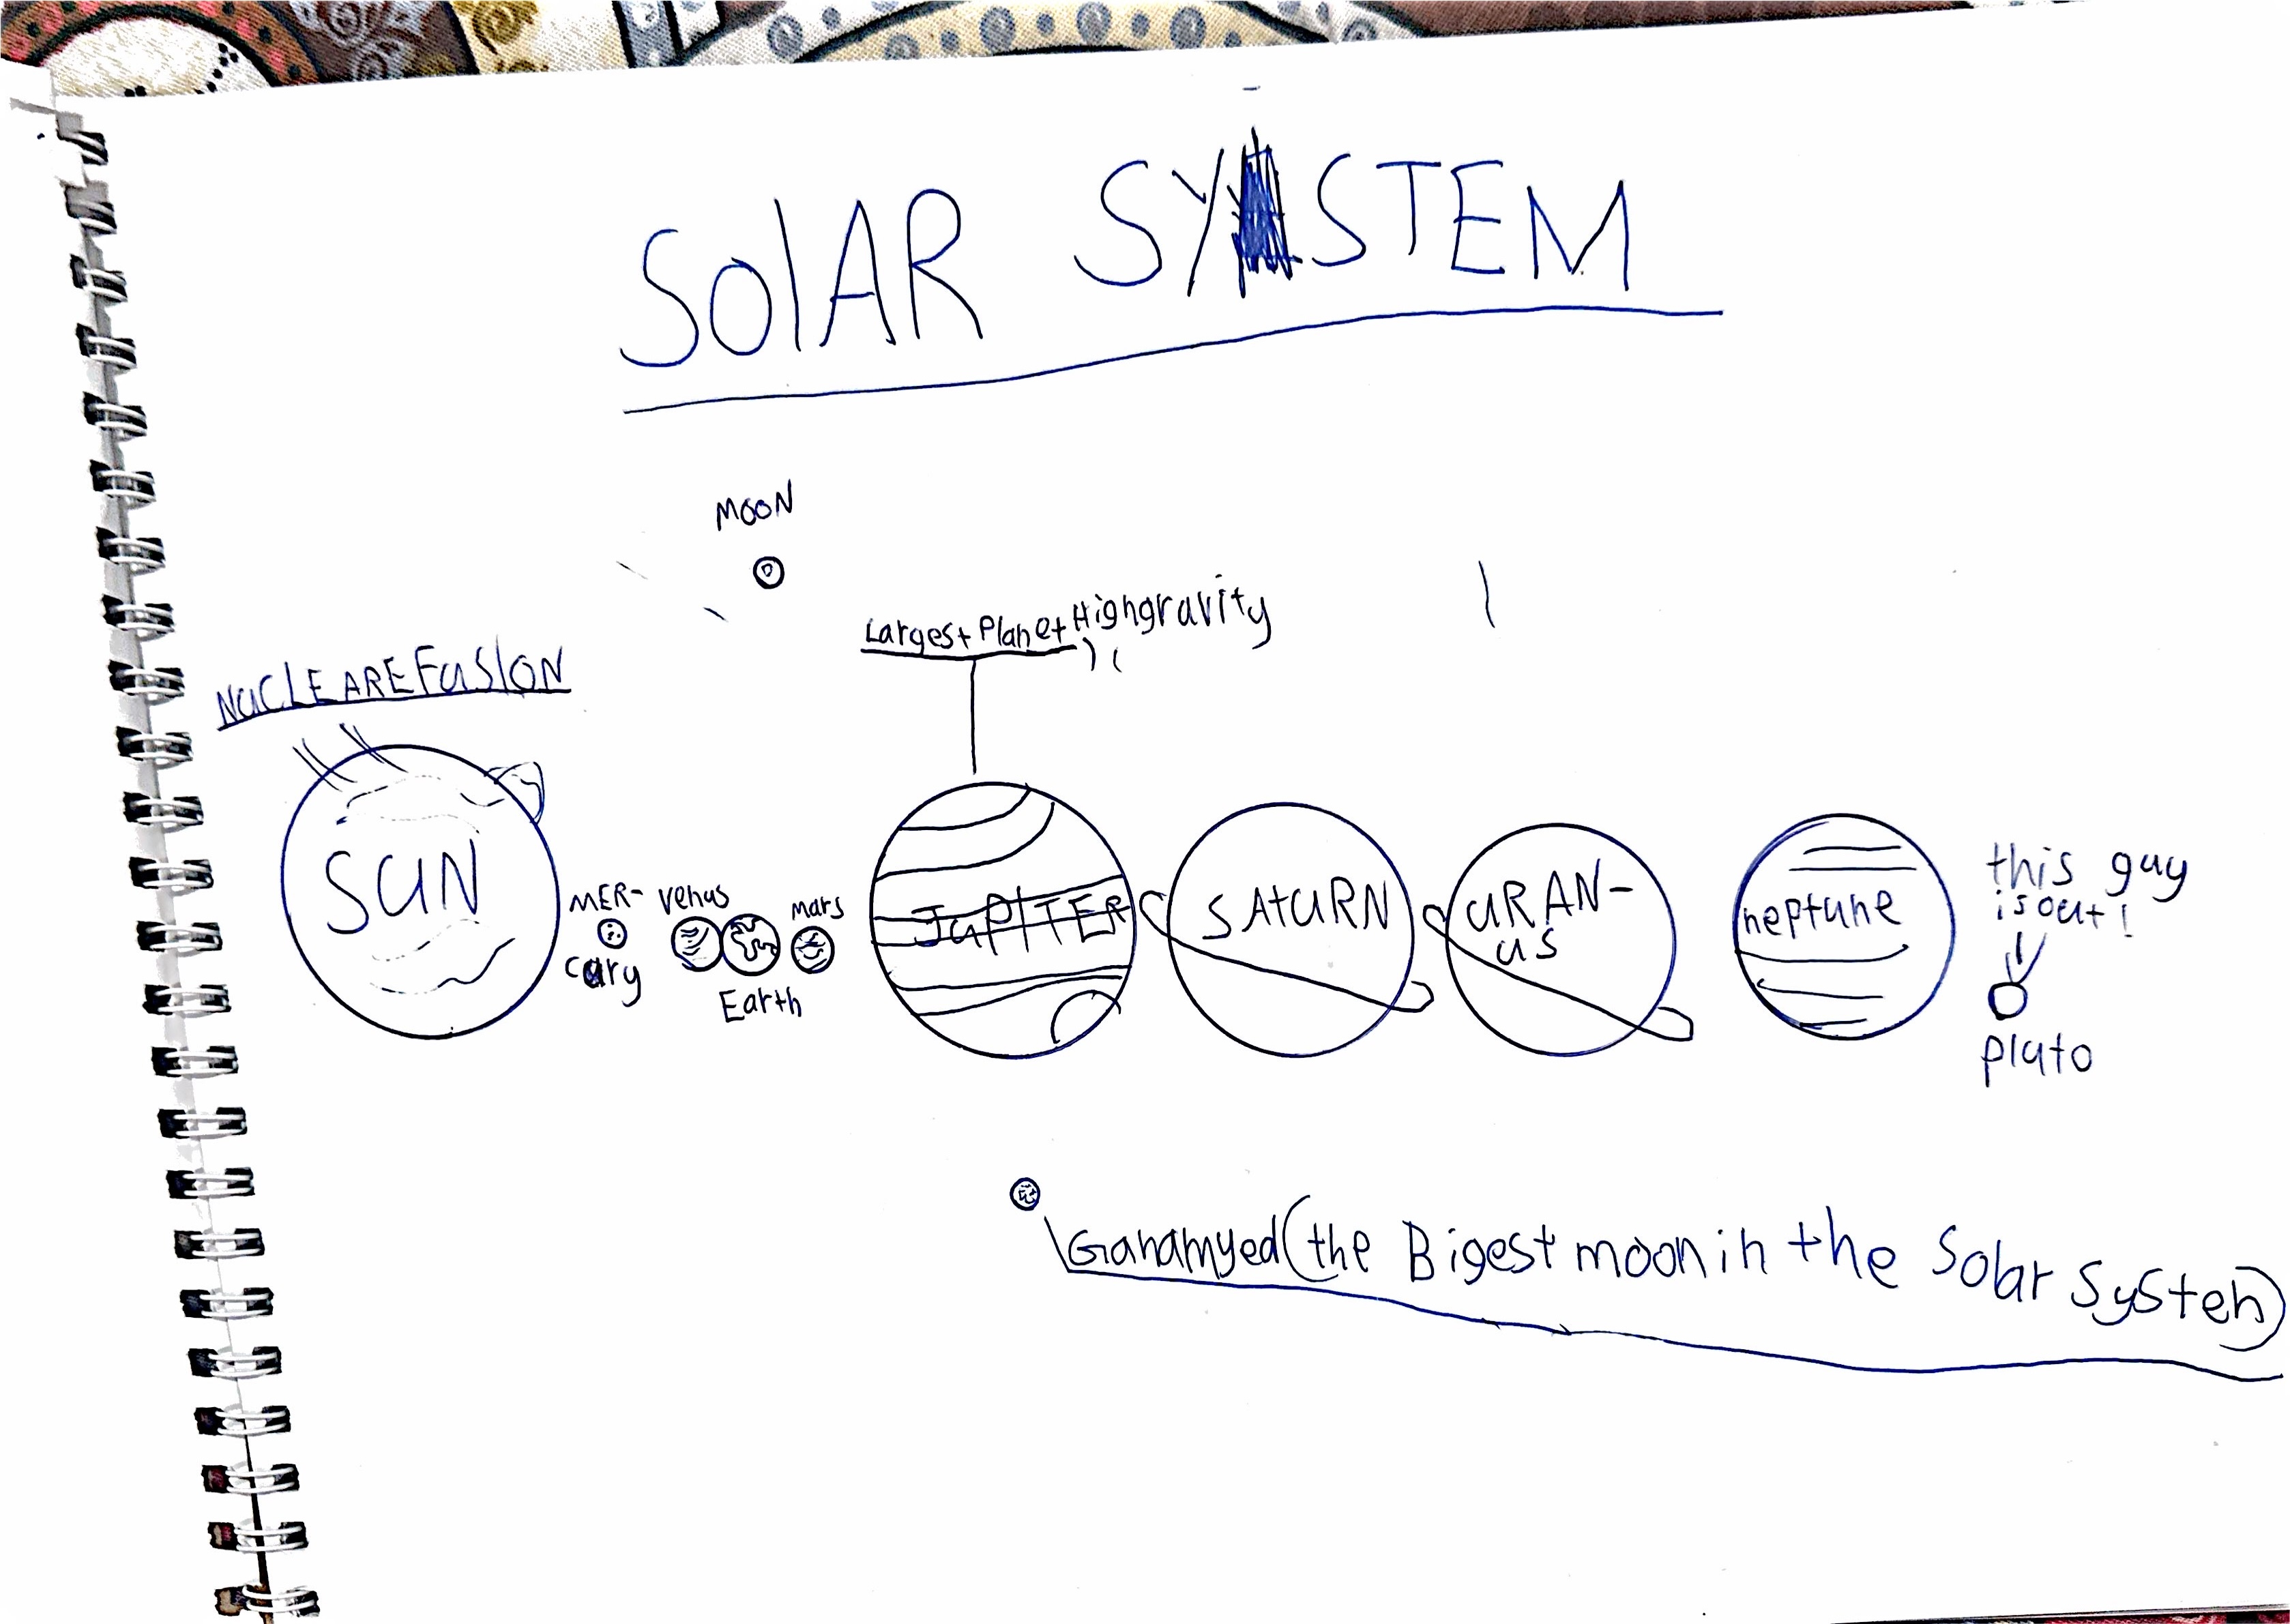 SOlAR SYSTEM
MOON
Largest Planet, Highgravity
NUCLEAREFUSION
SUN
MER-
cury
venus
Earth
mars
JUPITER
SAtURN
URAN-
us
neptune
this guy
is out!
pluto
Ganamyed (the Bigest moon in the Solar Systeh)